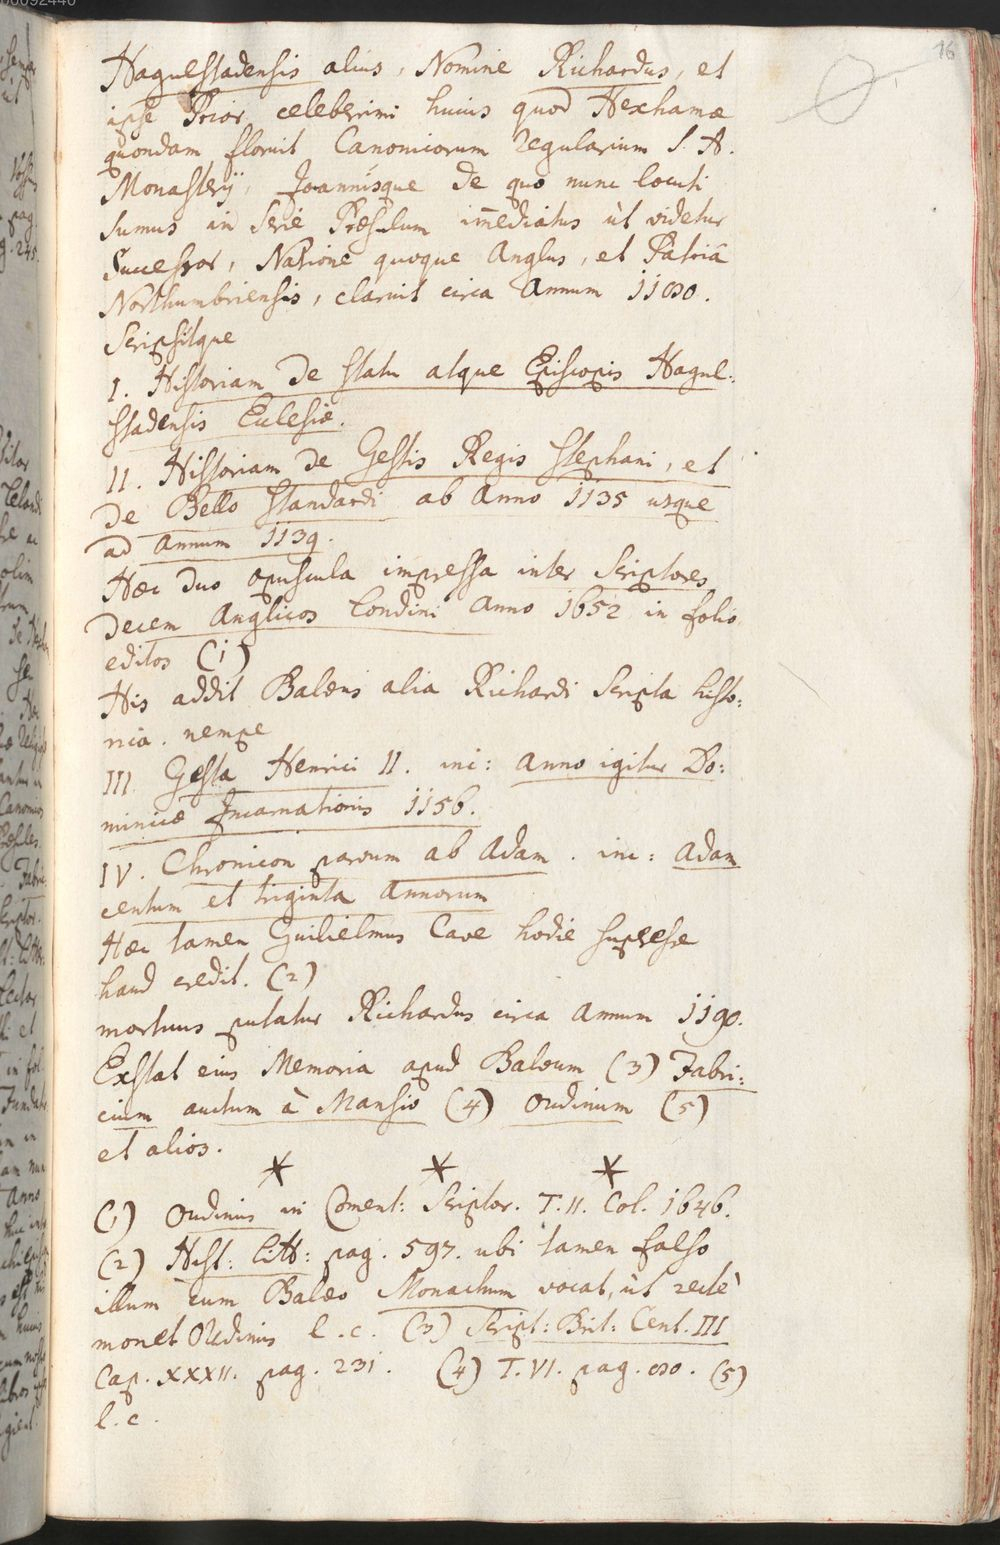 16
Hagulstadensis alius, Nomine Richardus, et
ipse Prior celeberrimi huius quod Hexhamæ
quondam floruit Canonicorum Regularium S. A.
Monasterÿ, Joannisque de quo nunc locuti
sumus in serie Præsulum im̄ediatus ùt videtur
Successor, Natione quoque Anglus, et Patriâ
Northumbriensis, claruit circa Annum 1180.
Scripsitque
I. Historiam de statu atque Episcopis Hagul:
stadensis Eclesiæ.
II. Historiam de Gestis Regis Stephani, et
de Bello Standardi ab Anno 1135 usque
ad Annum 1139.
Hæc duo opuscula impressa inter Scriptores
decem Anglicos Londini Anno 1652 in folio
editos (1)
His addit Balæus alia Richardi Scripta histo:
rica. nempe
III Gesta Henrici II. inc: Anno igitur Do:
minicæ Incarnationis 1156.
IV. Chronicon parvum ab Adam. inc: Adam
centum et triginta Annorum
Hæc tamen Guilielmus Cave hodie superesse
haud credit. (2)
mortuus putatur Richardus circa Annum 1190.
Exstat eius Memoria apud Balæum (3) Fabri:
cium auctum à Mansio (4) Oudinum (5)
et alios.
* * *
(1) Oudinus in Coment: Scriptor. T. II. Col. 1646.
(2) Hist: Litt: pag. 597. ubi tamen falso
illum cum Balæo Monachum vocat, ùt rectè
monet Oudinus l. c. (3) Script: Brit: Cent. III
Cap. XXXII. pag. 231. (4) T. VI. pag. 80. (5)
l. c.